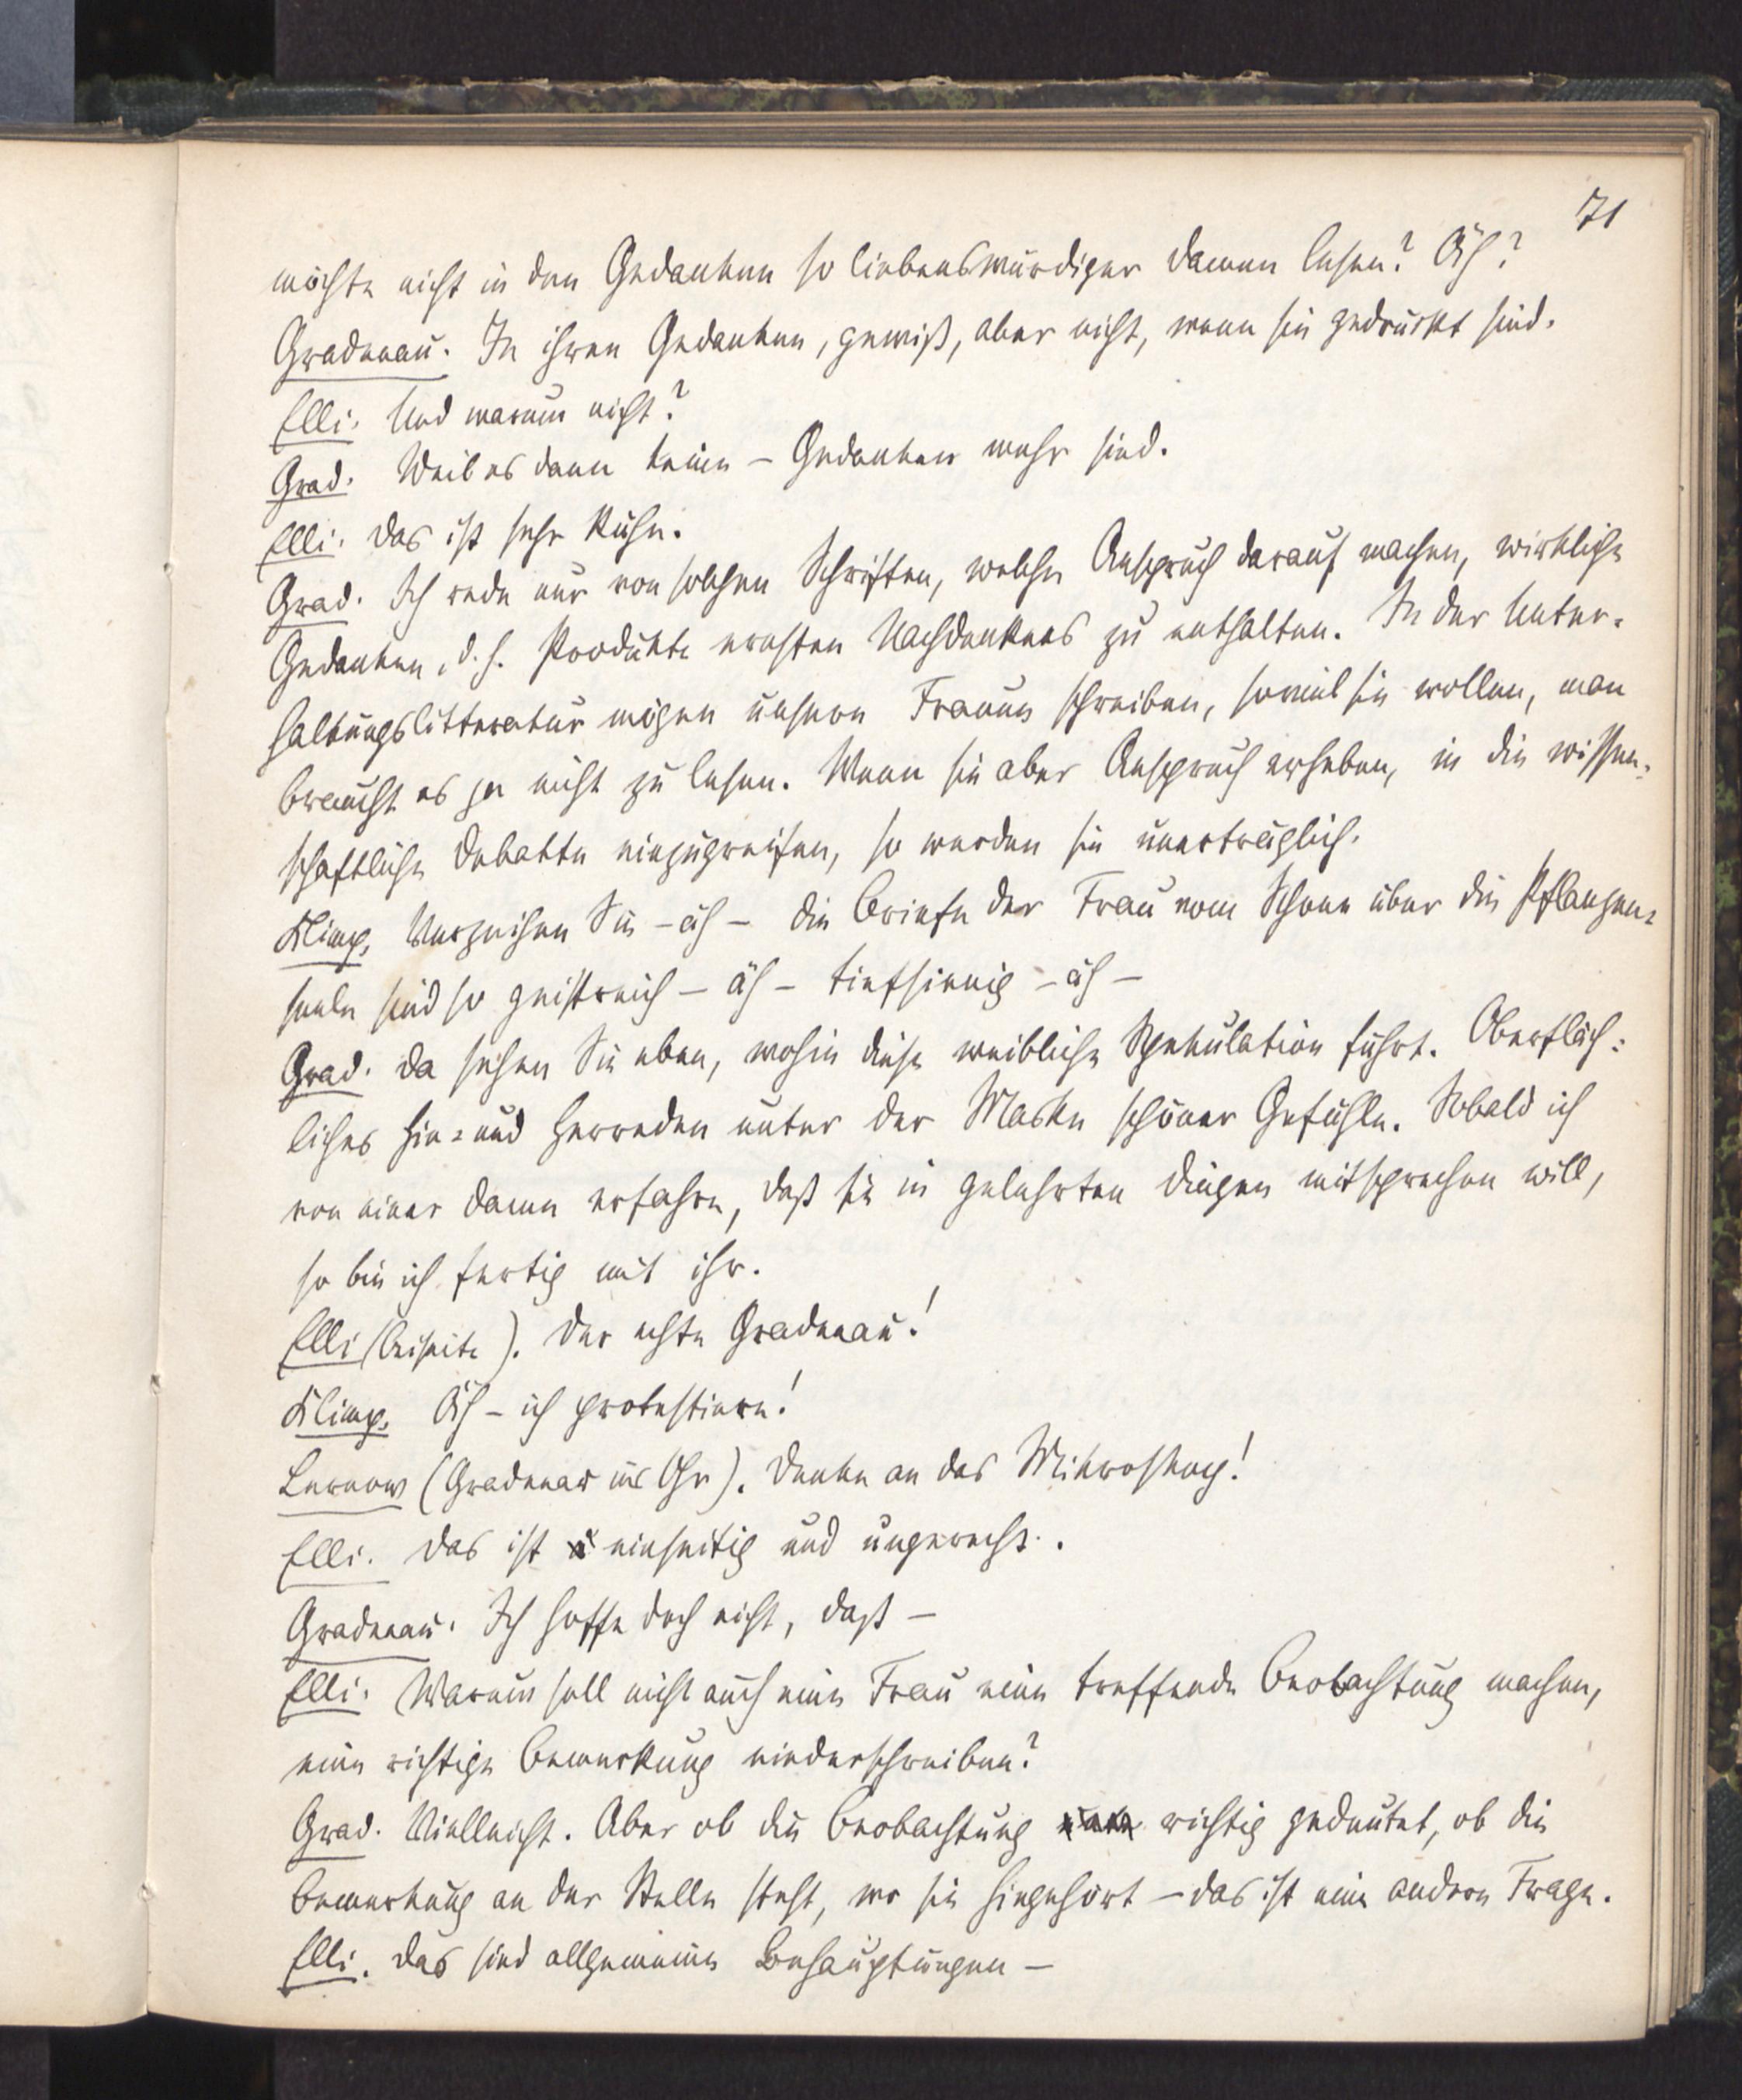 71
möchte nicht in den Gedanken so liebenswürdiger Damen lesen? Äh?
Gradenau. In ihren Gedanken, gewiß, aber nicht, wenn sie gedruckt sind.
Elli. Und warum nicht?
Grad. Weil es dann keine – Gedanken mehr sind.
Elli. Das ist sehr kühn.
Grad. Ich rede nur von solchen Schriften, welche Anspruch darauf machen, wirkliche
Gedanken, d. h. Produkte ernsten Nachdenkens zu enthalten. In der Unter-
haltungslitteratur mögen unsere Frauen schreiben, soviel sie wollen, man
braucht es ja nicht zu lesen. Wenn sie aber Anspruch erheben, in die wissen-
schaftliche Debatte einzugreifen, so werden sie unerträglich.
Klimp. Verzeihen Sie – äh – die Briefe der Frau vom Schone über die Pflanzen-
seele sind so geistreich – äh – tiefsinnig – äh –
Grad. Da sehen Sie eben, wohin diese weibliche Spekulation führt. Oberfläch-
liches Hin- und Herreden unter der Maske schöner Gefühle. Sobald ich
von einer Dame erfahre, daß sie in gelehrten Dingen mitsprechen will,
so bin ich fertig mit ihr.
Elli (beiseite). Der echte Gradenau!
Klimp. Äh – ich protestiere!
Lernow (Gradenau ins Ohr). Denke an das Mikroskop!
Elli. Das ist einseitig und ungerecht.
Gradenau. Ich hoffe doch nicht, daß –
Elli. Warum soll nicht auch eine Frau eine treffende Beobachtung machen,
eine richtige Bemerkung niederschreiben?
Grad. Vielleicht. Aber ob die Beobachtung richtig gedeutet, ob die
Bemerkung an der Stelle steht, wo sie hingehört – das ist eine andere Frage.
Elli. Das sind allgemeine Behauptungen –